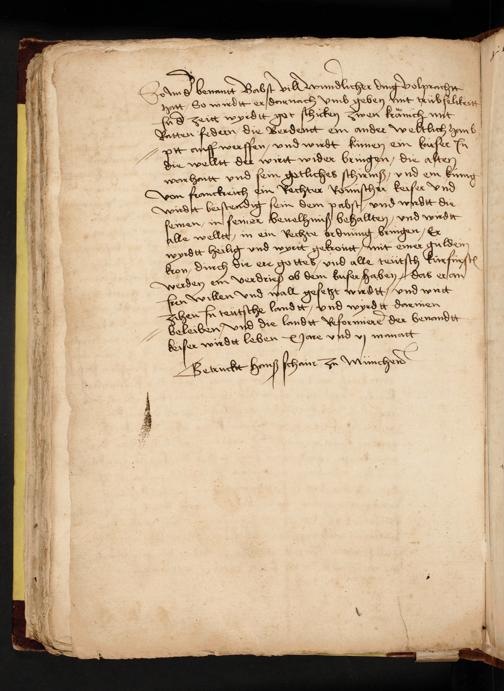 So und benantt Babst vill wundlicher ding volpracht
hatt, So wirdt er darnach umb geben mit triebseligkeit
und zeitt wyrdt got schicken zwen kränich mit
Ratten federn die werdent ein ander weltlich
ott auff werffen, und wirdt kumen ein kaiser In
die welltt der wirt wider bringen, die alten
warhaitt und sein gotliches und ein kunig
von franckreich ein Rechter Romischer keiser und
wirdt bestendig sein dem pabst, und wirdt die
seinen, in seiner bevelhnis behallten, und wirdt
alle welltt, in ein Rechte ordnung bringen, Er
wyrdt heilig und wyrt gekront mit einer gulden
kron, durch die ere gottes und alle teutsch kurfursten
werden ein verdries ob dem kaiser haben, das er an
Iren willen und wall gesetzt wirdtt, und wirt
ziehen In teutsche landtt, und wyrdt darinen
beleiben, und die landtt Reformiere der benandtt
keiser wirdt leben x Jare und vj monatt
Getruckt Hans schaur zu München